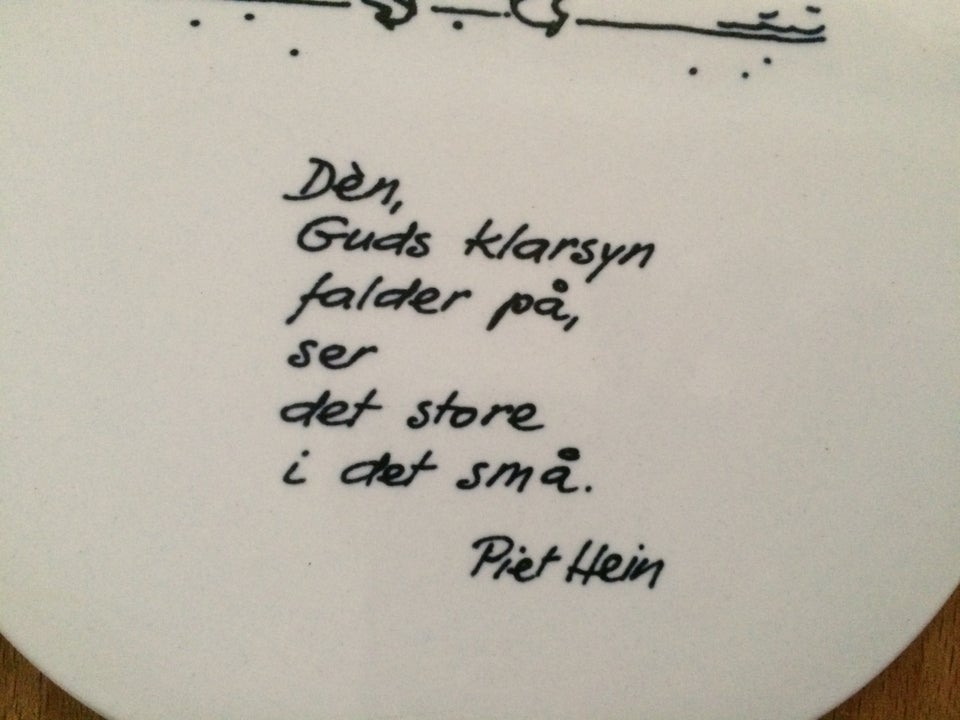 Dèn,
Guds klarsyn
falder på,
ser
det store
i det små.
Piet Hein